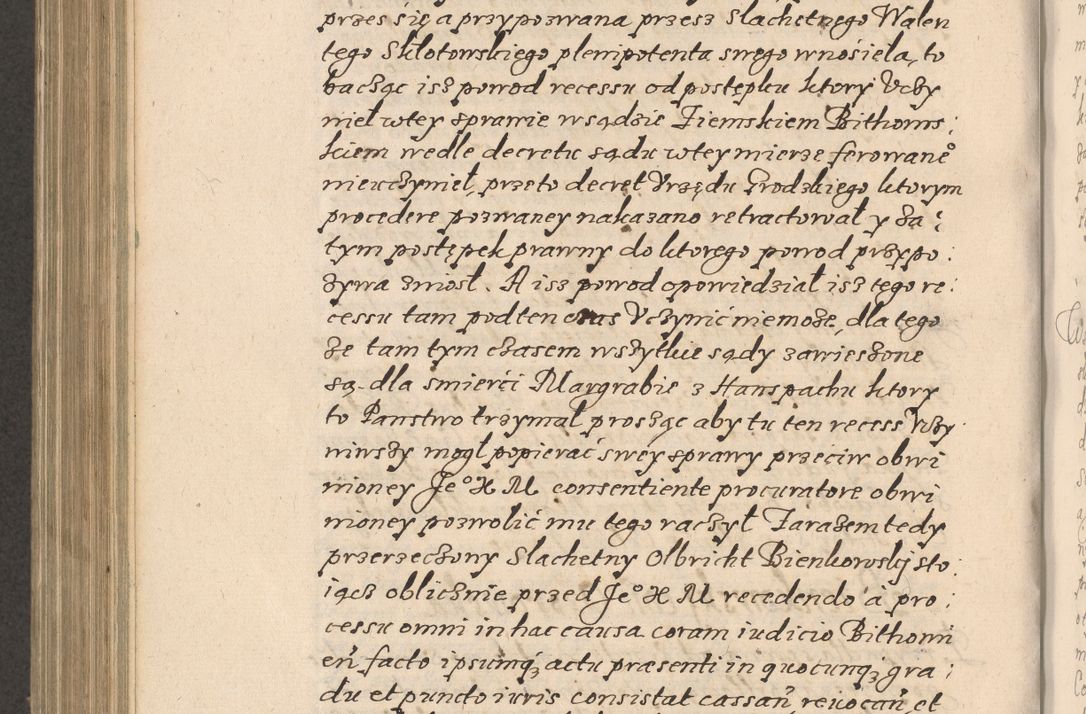 przes się a przypozwana przesz Slachetnego Walen
tego Skłotowskiego plenipotenta swego wnosieła, to
bacząc isz powod recessu od postępku ktory Uczy
nieł wtey sprawie wsądzie Ziemskiem Bithoms :
kiem wedle decretu sądu wtey mierze ferowane°
nieuczynieł, przeto decret Urzędu Grodzkiego ktorym
procedere pozwaney nakazano retractował y za :
tym postępek prawny do ktorego powod przypo :
zywa zniosł. A isz powod opowiedział isz tego re :
cessu tam pod ten czas Uczynić niemoże, dla tego
że tam tym czasem wszytkie sądy zawieszone
są dla smierći Margrabie z Hanspachu ktory
to Panstwo trzymał prosząc aby tu ten recess Uczy
niwszy mogł popierać swey sprawy przeciw obwi
nioney Je° X M consentiente procuratore obwi
nioney pozwolić mu tego raczył Zarazem tedy
przerzeczony Slachetny Olbricht Bienkowskij sto :
iącz oblicznie przed Je° X M recedendo à pro :
cessu omni in hac causa coram iudicio Bithomi
en̄ facto ipsumq₃ actu præsenti in quocunq₃ gra :
du et puncto iuris consistat cassan̄ reuocan̄ et